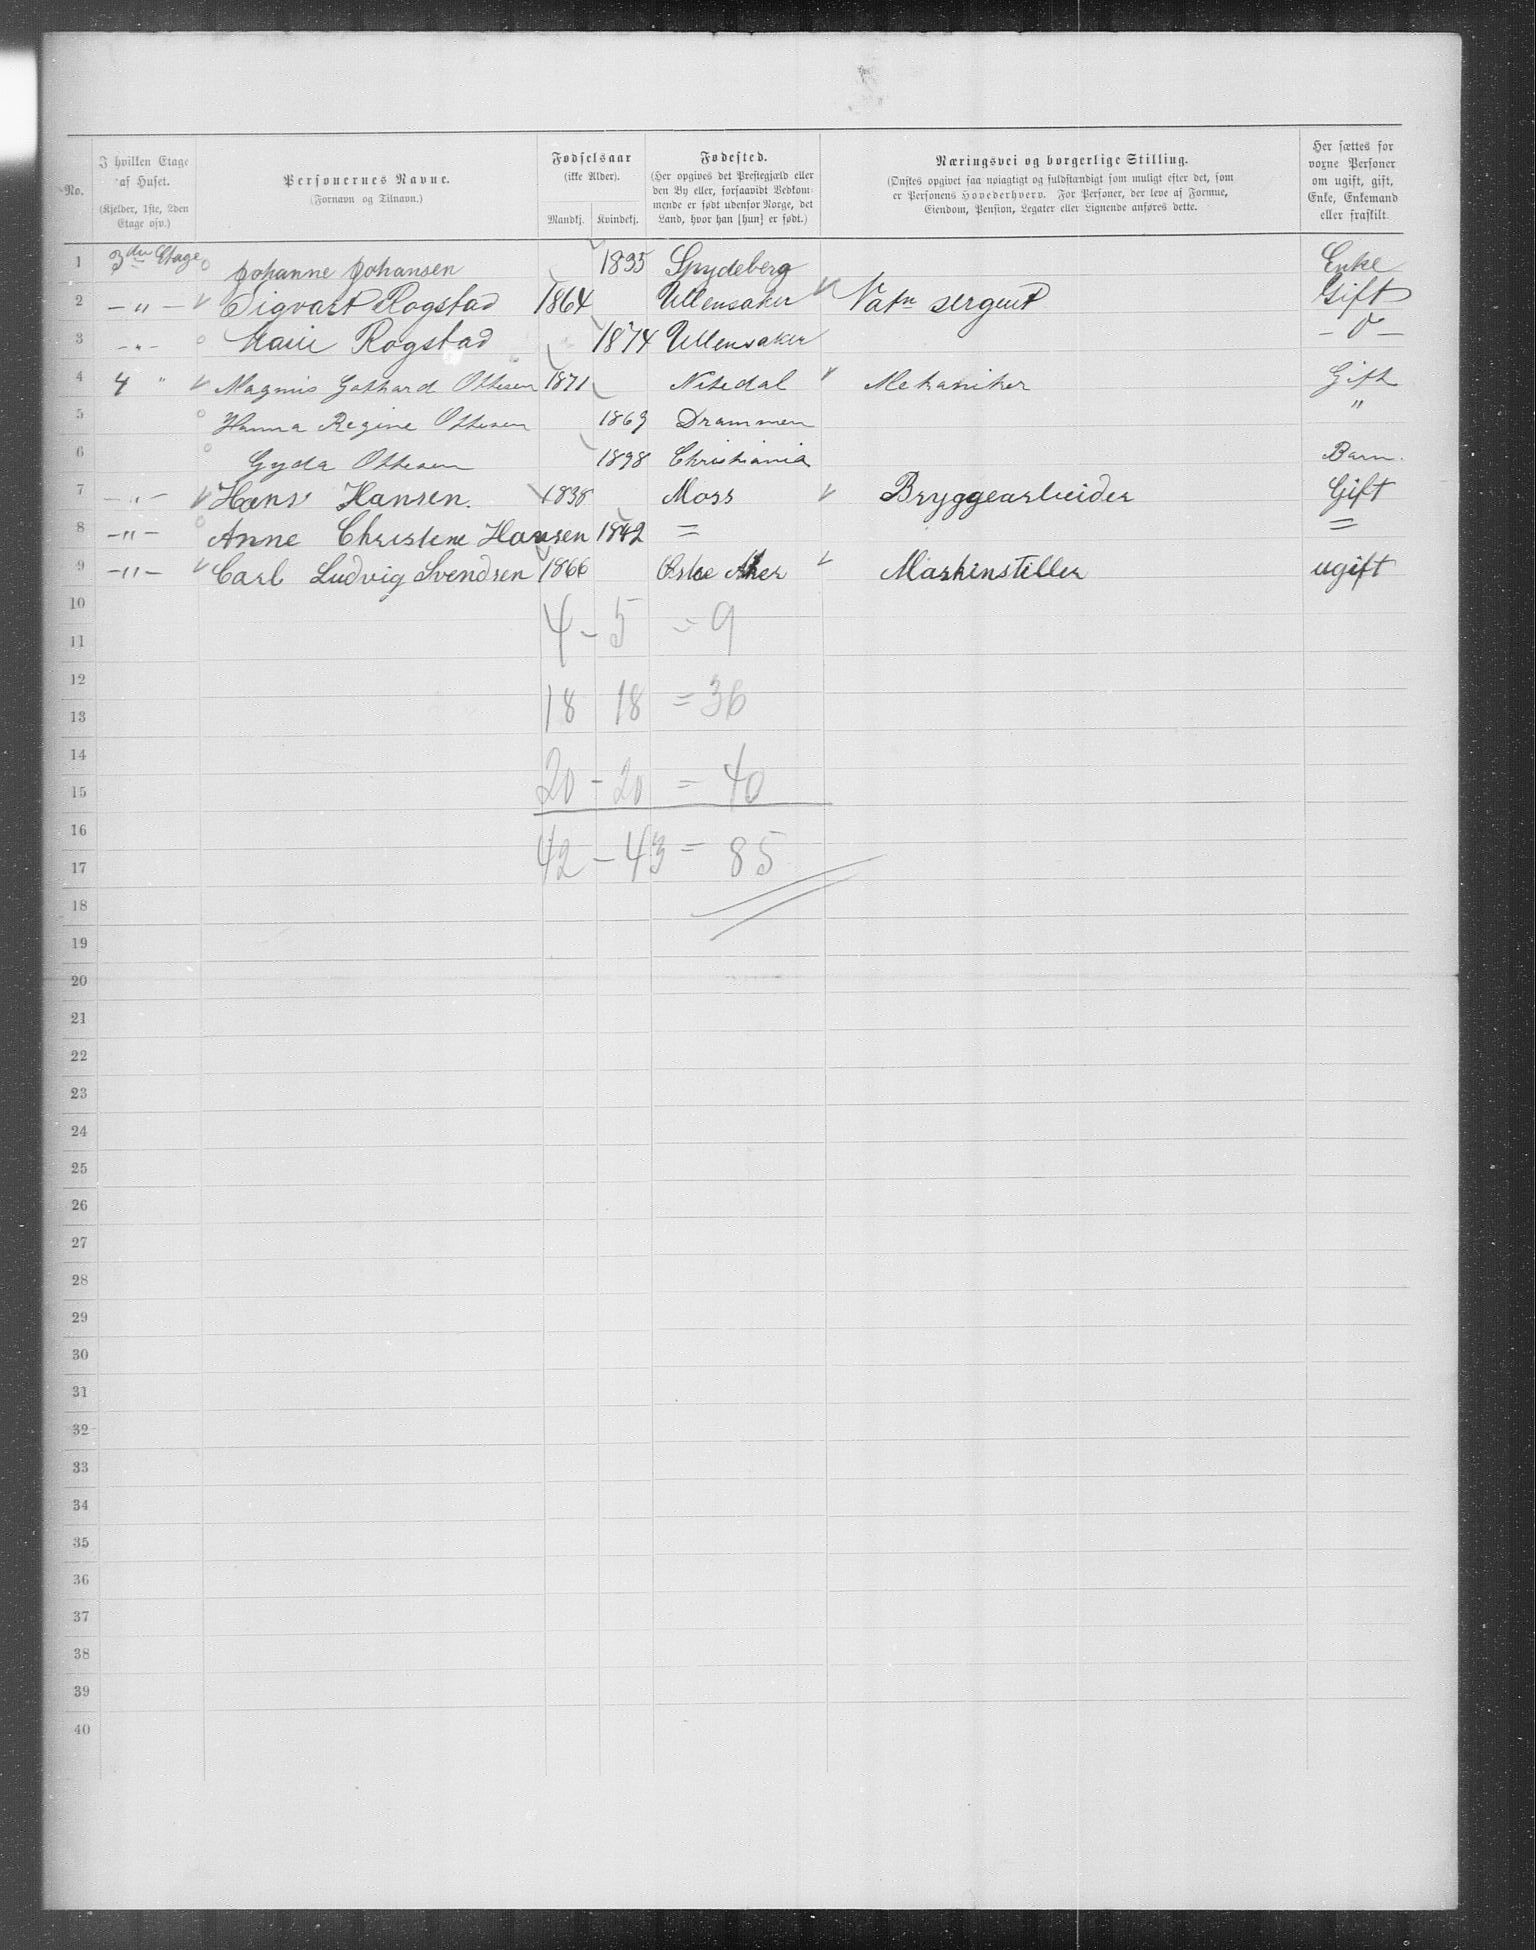 No.
I hvilken Etage af Huset.
(Kjelder, 1ste, 2den Etage osv.)
Personernes Navne.
(Fornavn og Tilnavn.)
Fødselsaar
(ikke Alder).
Mandkj. Kvindekj.
Fødested.
(Her opgives det Præstegjæld eller
den By eller, forsaavidt Vedkom-
mende er født udenfor Norge, det
Land, hvor han [hun] er født.)
Næringsvei og borgerlige Stilling.
(Ønskes opgivet saa nøiagtigt og fuldstændigt som muligt efter det, som
er Personens Hovederhverv. For Personer, der leve af Formue,
Eiendom, Pension, Legater eller Lignende anføres dette.
Her sættes for
voxne Personer
om ugift, gift,
Enke, Enkemand
eller fraskilt.
1 3die Etage Johanne Johansen 1835 Spydeberg Enke
2 — " — Sigvart Rogstad 1864 Ullensaker sergent Gift
3 — " — Rogstad 1874 Ullensaker — " —
4 4 " Magnus Gothard Ottesen 1871 Nitedal Mekaniker Gift
5 Hanna Regine Ottesen 1869 Drammen "
6 Gyda Ottesen 1898 Christiania Barn.
7 — " — Hans Hansen. 1838 Moss Bryggearbeider Gift
8 — " — Anne Christene Hansen 1842 = =
9 — " — Carl Ludvig Svendsen 1866 Østre Aker Maskinstiller ugift
10
4 – 5 = 9
11
12
18 18 = 36
13
14
20 – 20 = 40
15
16
42 – 43 = 85
17
18
19
20
21
22
23
24
25
26
27
28
29
30
31
32
33
34
35
36
37
38
39
40